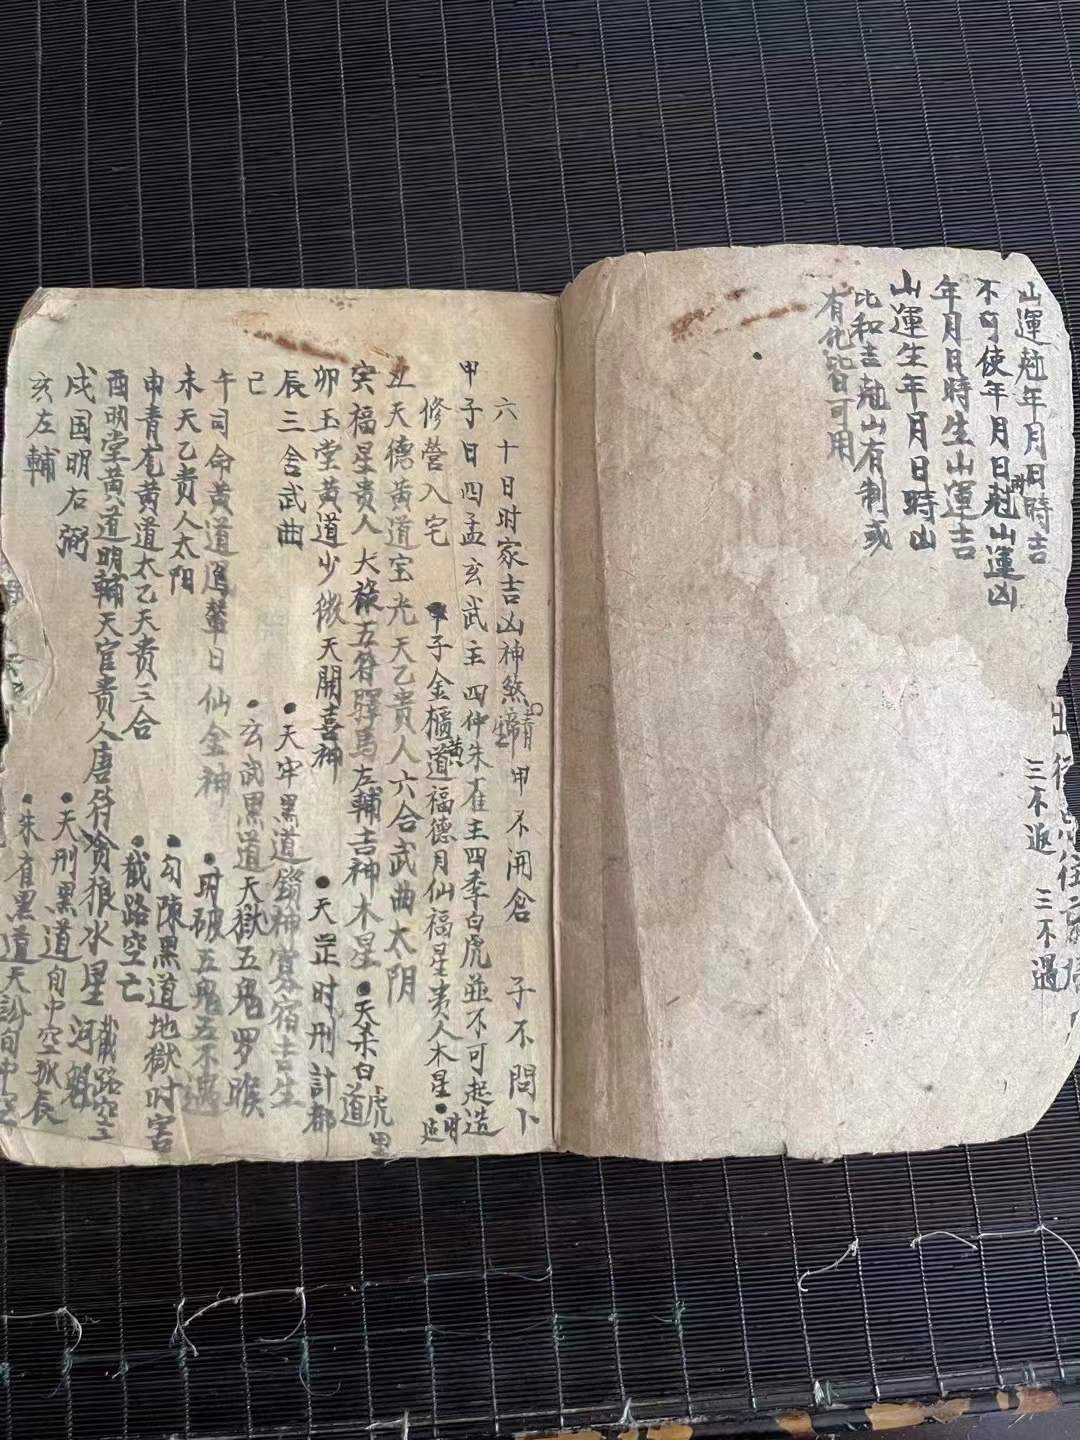 山運尅年月日時吉
不可使年月日時尅山運凶
年月日時生山運吉
山運生年月日時山
比和吉尅山有制或
有化皆可用
出行
三不返 三不遇
六十日时家吉凶神煞 甲不開倉 子不問卜
甲子日四孟玄武主四仲朱雀主四季白虎並不可起造
修營入宅
甲子金櫃黄道福德月仙福星贵人木星●时
丑天德黄道宝光天乙贵人六合武曲太阴
寅福星贵人大禄五符驛馬左輔吉神木星●天杀白虎黑道
卯玉堂黄道少微天開喜神 ●天罡时刑計都
辰三合武曲 ●天牢黑道鎖神寡宿
巳 ●玄武黑道天獄五鬼罗睺
午司命黄道鳳輦日仙金神 ●时破五鬼五不遇
未天乙贵人太阳 ●勾陳黑道地獄时害
申青竜黄道太乙天贵三合 ●截路空亡
酉明堂黄道明輔天官贵人唐符貪狼水星 河魁 截路空
戌国明右弼 ●天刑黑道旬中空孤辰
亥左輔 ●朱雀黑道天訟旬中空